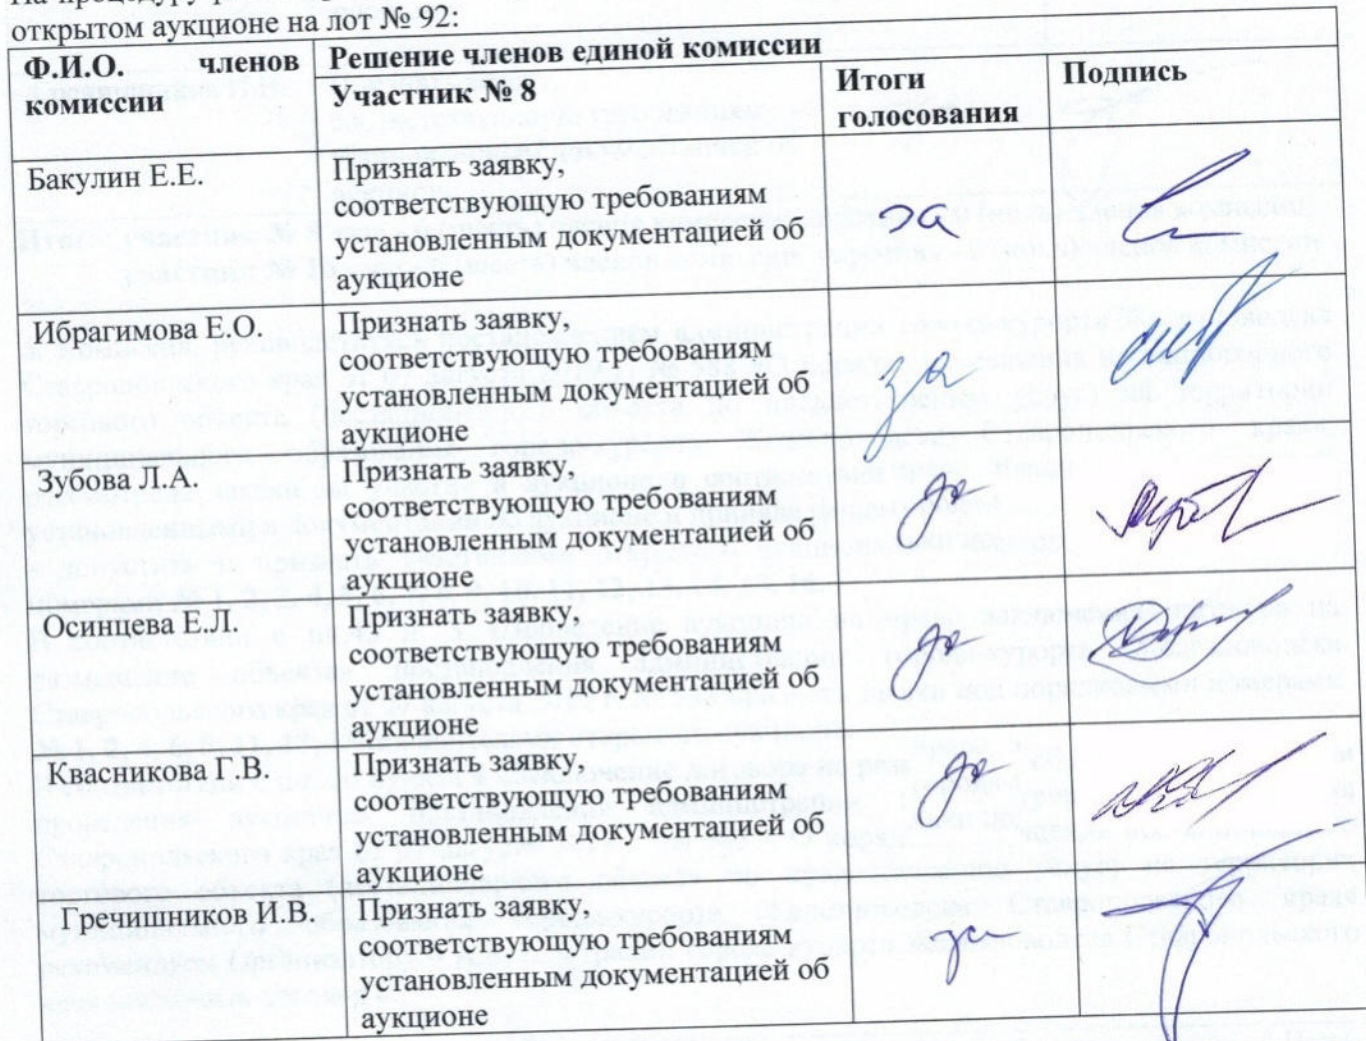 открытом аукционе на лот № 92:
Ф.И.О. членов комиссии
Решение членов единой комиссии
Участник № 8
Итоги голосования
Подпись
Бакулин Е.Е.
Признать заявку,
соответствующую требованиям
установленным документацией об
аукционе
за
Ибрагимова Е.О.
Признать заявку,
соответствующую требованиям
установленным документацией об
аукционе
за
Зубова Л.А.
Признать заявку,
соответствующую требованиям
установленным документацией об
аукционе
за
Осинцева Е.Л.
Признать заявку,
соответствующую требованиям
установленным документацией об
аукционе
за
Квасникова Г.В.
Признать заявку,
соответствующую требованиям
установленным документацией об
аукционе
за
Гречишников И.В.
Признать заявку,
соответствующую требованиям
установленным документацией об
аукционе
за